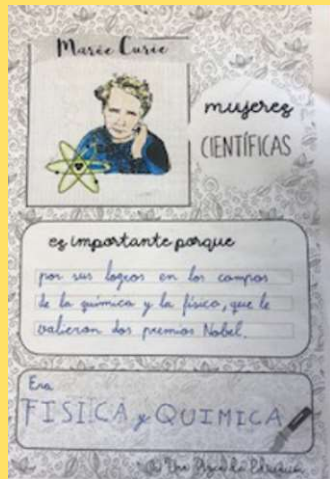 Marie Curie
mujeres
CIENTÍFICAS
es importante porque
por sus logros en los campos
de la química y la física, que le
valieron dos premios Nobel.
Era
FISICA y QUIMICA